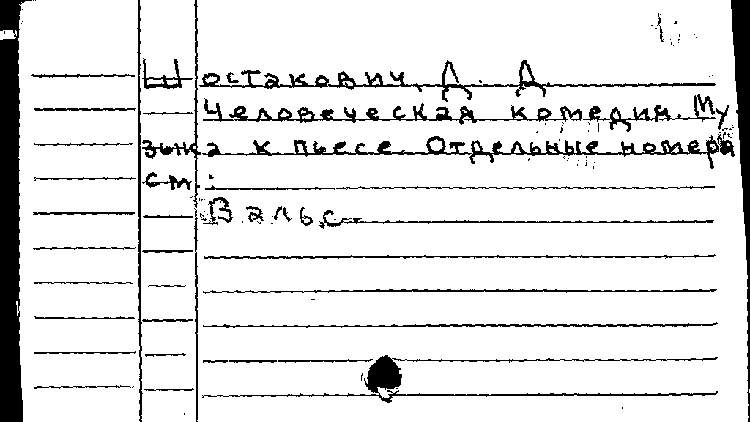 Шостакович, Д. Д.
Человеческая комедия. Му
зыка к пьесе. Отдельные номера
см.:
Вальс